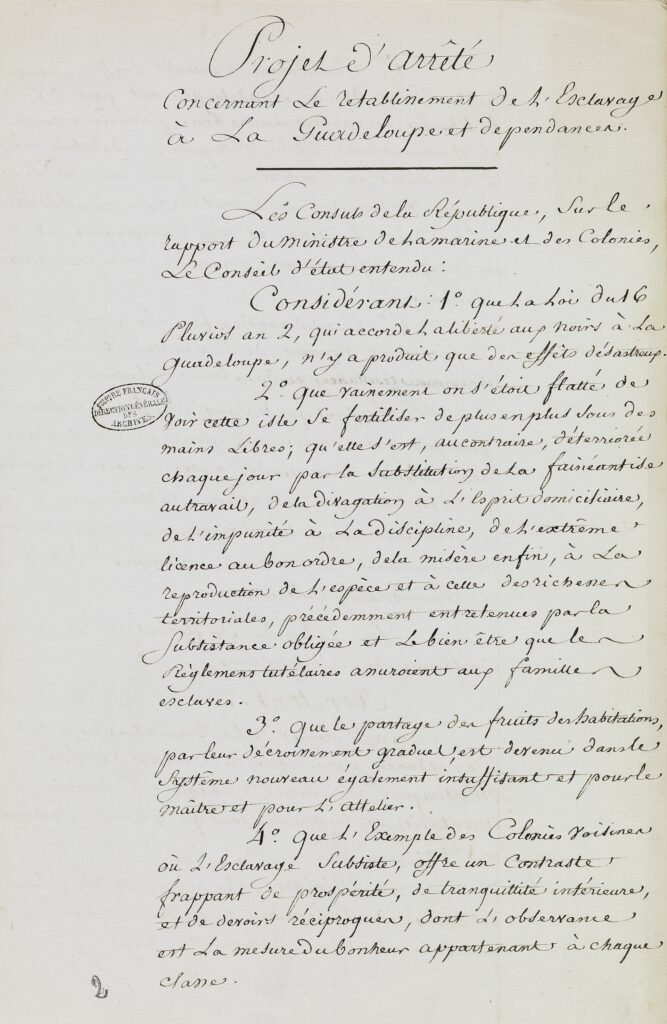 Projet d'arrêté
Concernant Le retablissement de L'Esclavage
à La Guadeloupe et dependances.
Les Consuls de la République, Sur le
rapport du Ministre de la marine et des Colonies,
Le Conseil d'état entendu :
Considérant : 1.° que La Loi du 16
Pluviose an 2, qui accorde La liberté aux noirs à La
Guadeloupe, n'y a produit que des effêts désastreux.
2.° Que vainement on s'étoit flatté de
Voir cette isle se fertiliser de plus en plus sous des
mains Libres; qu'elle s'est, au contraire, déteriorée
chaque jour par la Substitution de La fainéantise
au travail, de la divagation à L'Esprit domiciliaire,
de L'impunité à La discipline, de L'extrême
licence au bon ordre, de la misère enfin, à La
reproduction de L'espèce et à celle des richesses
territoriales, précédemment entretenues par la
Subsistance obligée et Le bien être que les
Règlemens tutélaires assuroient aux familles
esclaves.
3.° Que le partage des fruits des habitations,
par leur décroissement graduel, est devenu dans le
Système nouveau également insuffisant et pour le
maître et pour L'Attelier.
4.° que L'Exemple des Colonies Voisines
où L'Esclavage Subsiste, offre un Contraste
frappant de prospérité, de tranquillité intérieure,
et de devoirs réciproques, dont L'observance
est La mesure du bonheur appartenant à chaque
classe.
EMPIRE FRANÇAIS
DIRECTION GÉNÉRALE
DES
ARCHIVES
2